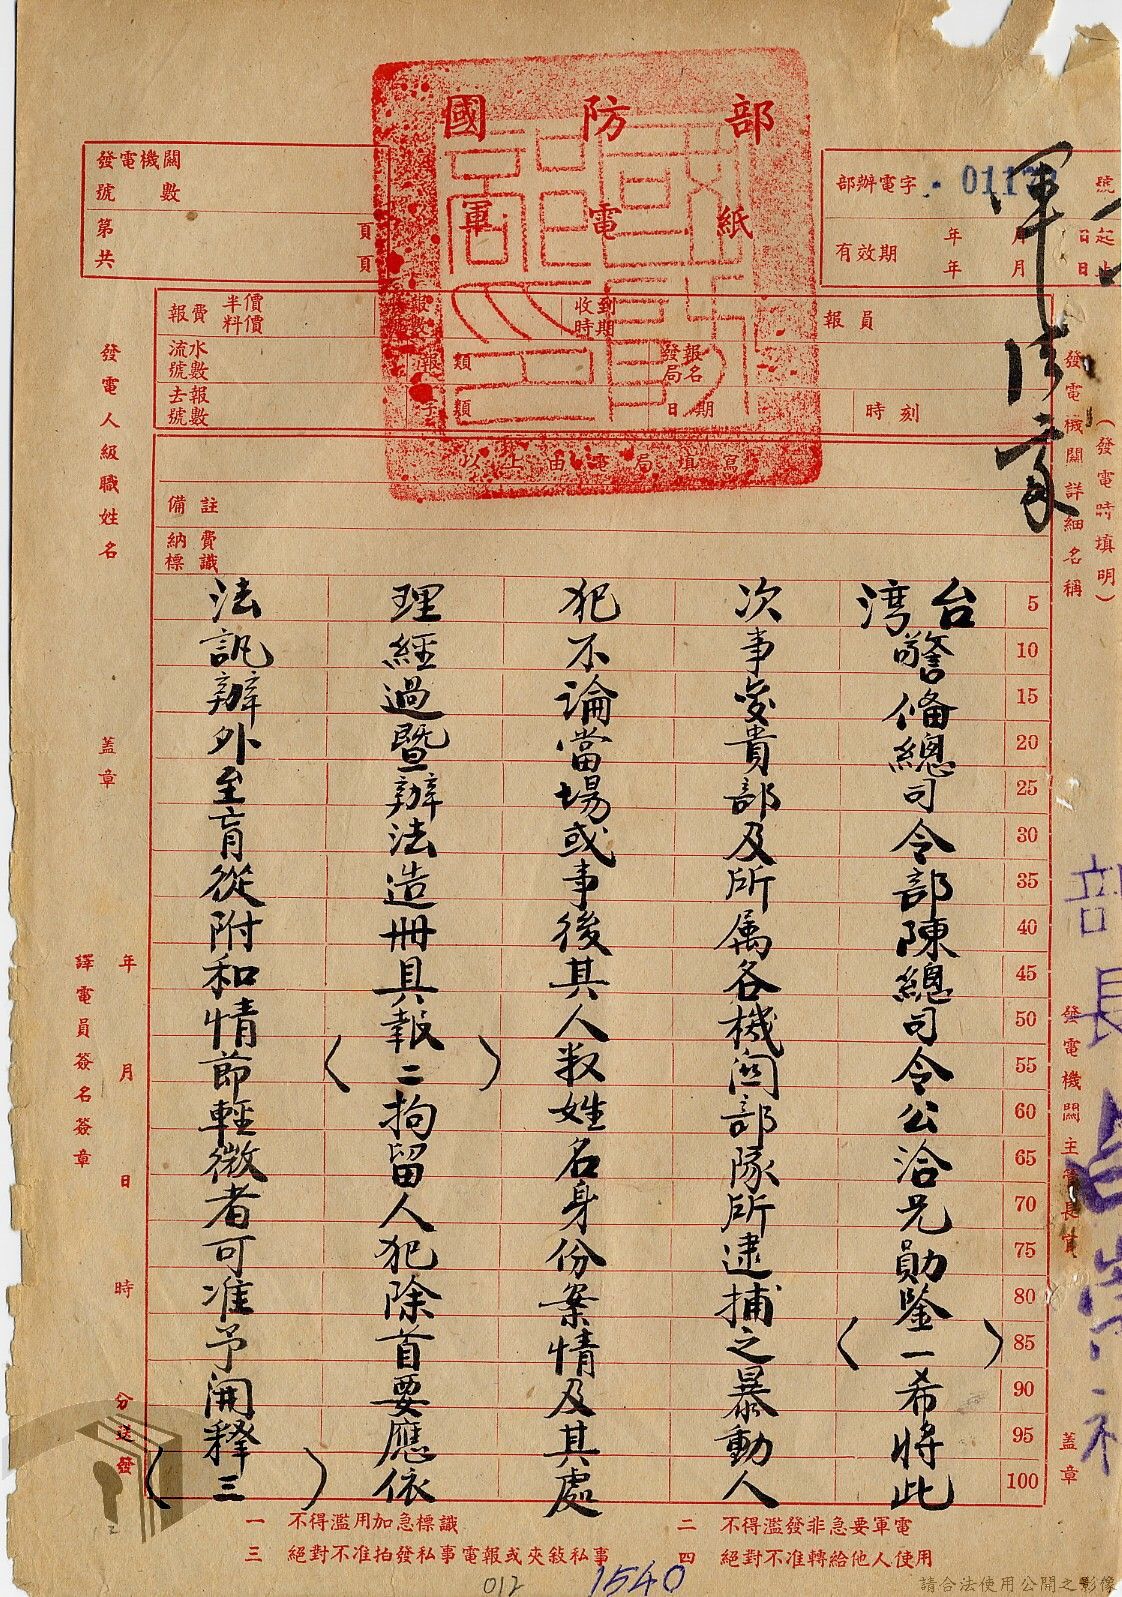 國防部
軍電紙
發電機關
號數
第 頁
共 頁
部辦電字 011 號
有效期 年 月 日起
年 月 日止
報費 半價
料價
報數
收到
時期
報員
流水
號數
報類
發報
局名
去報
號數
子類
日期
時刻
以上由電局填寫
備註
納費
標識
軍法處
(發電時填明)
發電機關詳細名稱
發電機關主管長官
蓋章
部長白崇禧
5
10
15
20
25
30
35
40
45
50
55
60
65
70
75
80
85
90
95
100
台灣警備總司令部陳總司令公洽兄勛鑒(一)希將此
次事变貴部及所属各機関部隊所逮捕之暴動人
犯不論當場或事後其人数姓名身份案情及其處
理經過暨辦法造冊具報(二)拘留人犯除首要應依
法訊辦外至盲從附和情節輕微者可准予開釋(三)
發電人級職姓名
蓋章
年月日時分送發
譯電員簽名簽章
一 不得濫用加急標識
二 不得濫發非急要軍電
三 絕對不准拍發私事電報或夾敘私事
四 絕對不准轉給他人使用
012
1540
請合法使用公開之影像